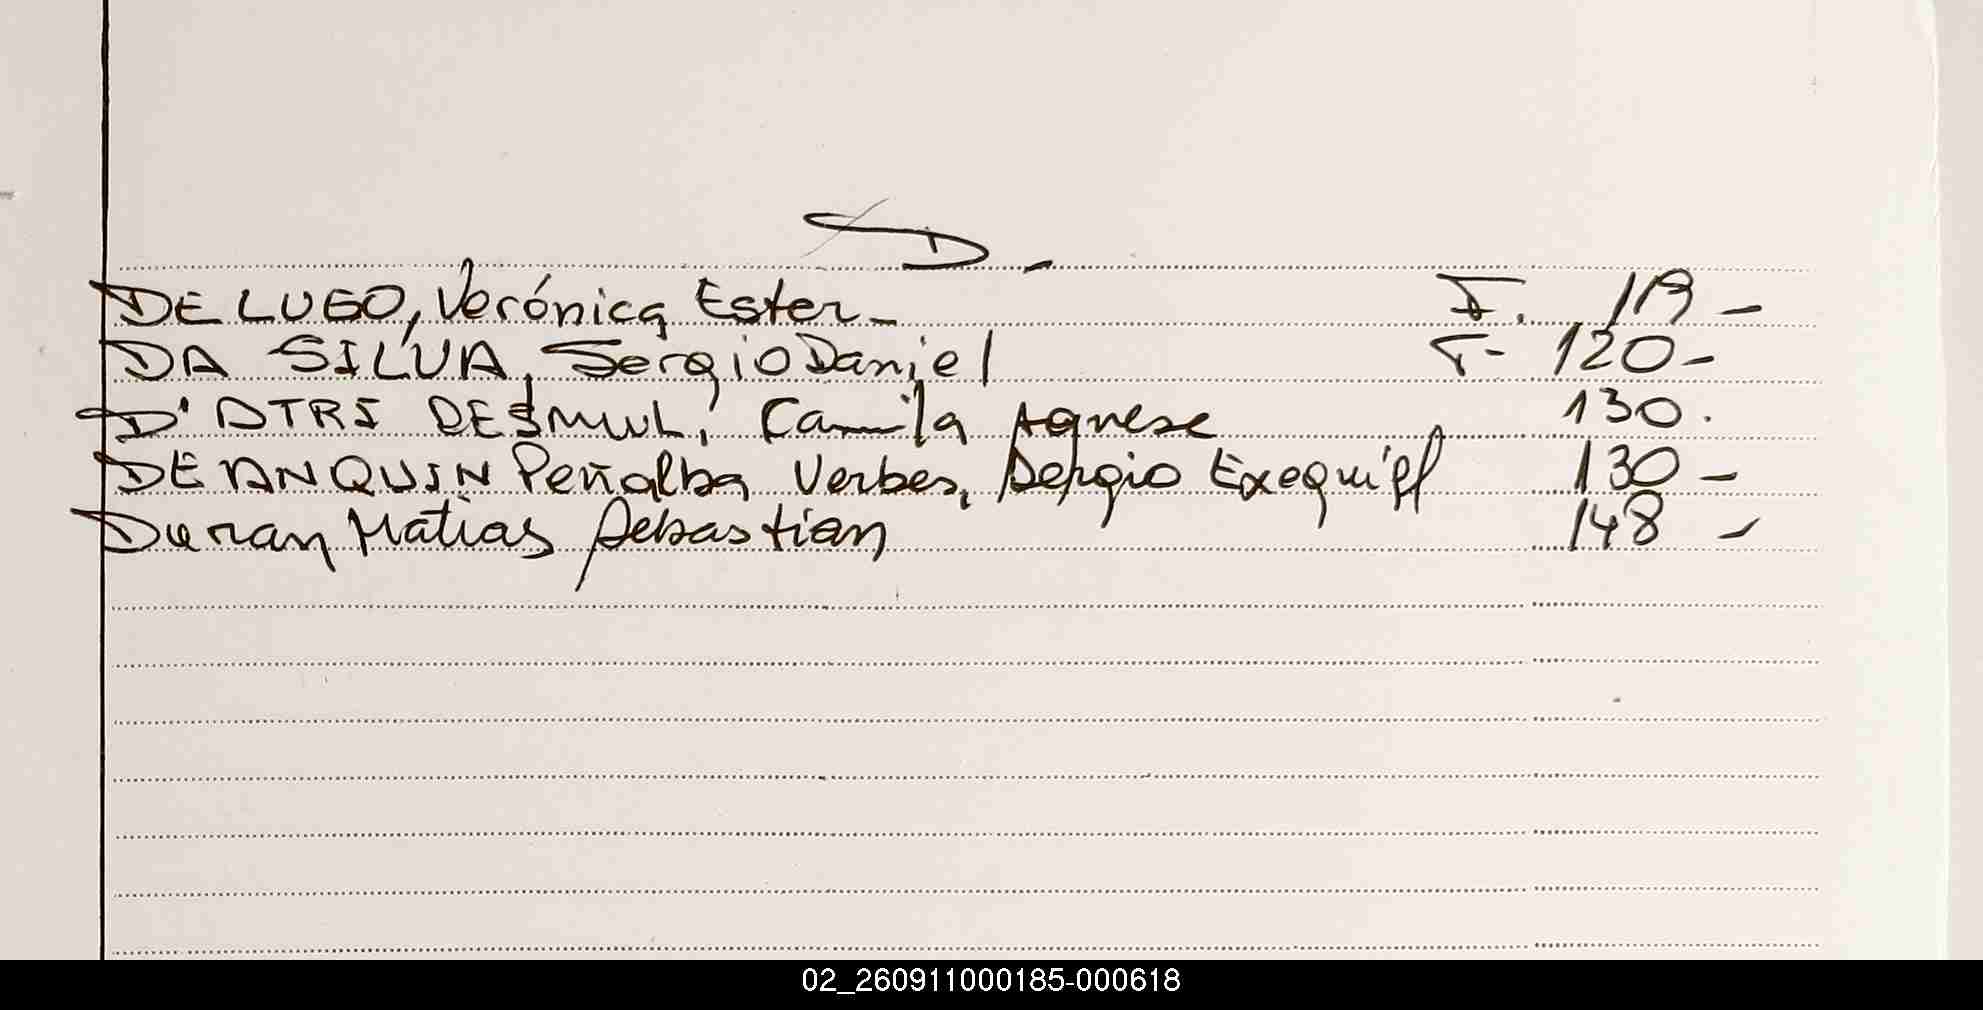 D.-
DE LUGO, Verónica Ester- F. 119-
DA SILVA, Sergio Daniel F- 120-
D'ATRI DESMUL, Camila Agnese 130.
DE ANQUIN Peñalba Verbes, Sergio Exequiel 130-
Duran Matias Sebastian 148-
02_260911000185-000618